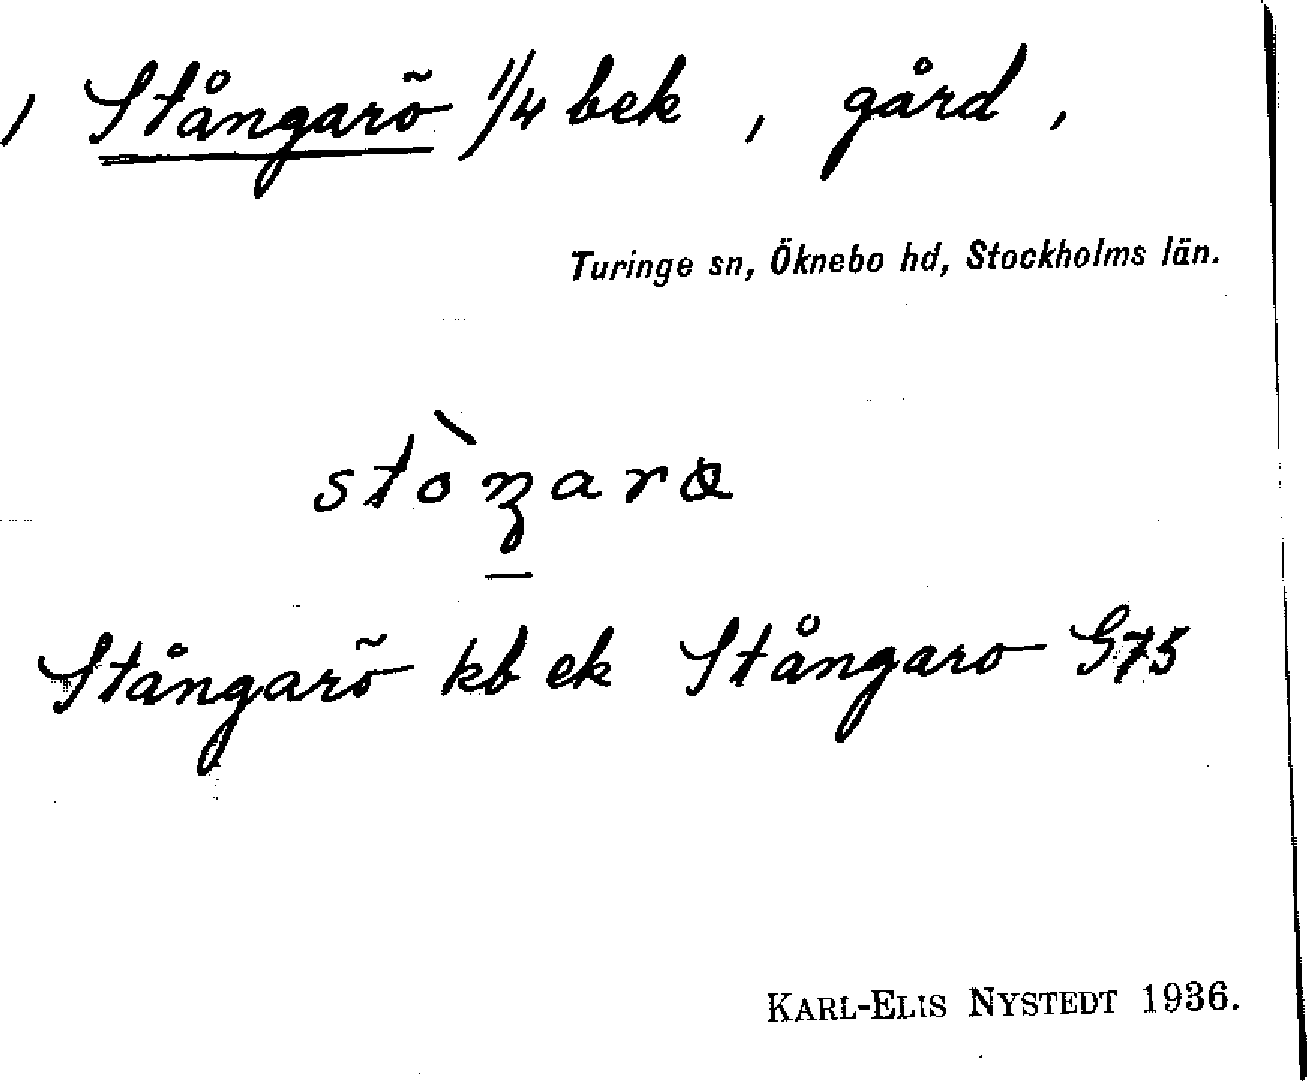 Stångarö 1/4 bek, gård,
Turinge sn, Öknebo hd, Stockholms län.
Stångarö kb ek Stångaro G75
KARL-ELIS NYSTEDT 1936.